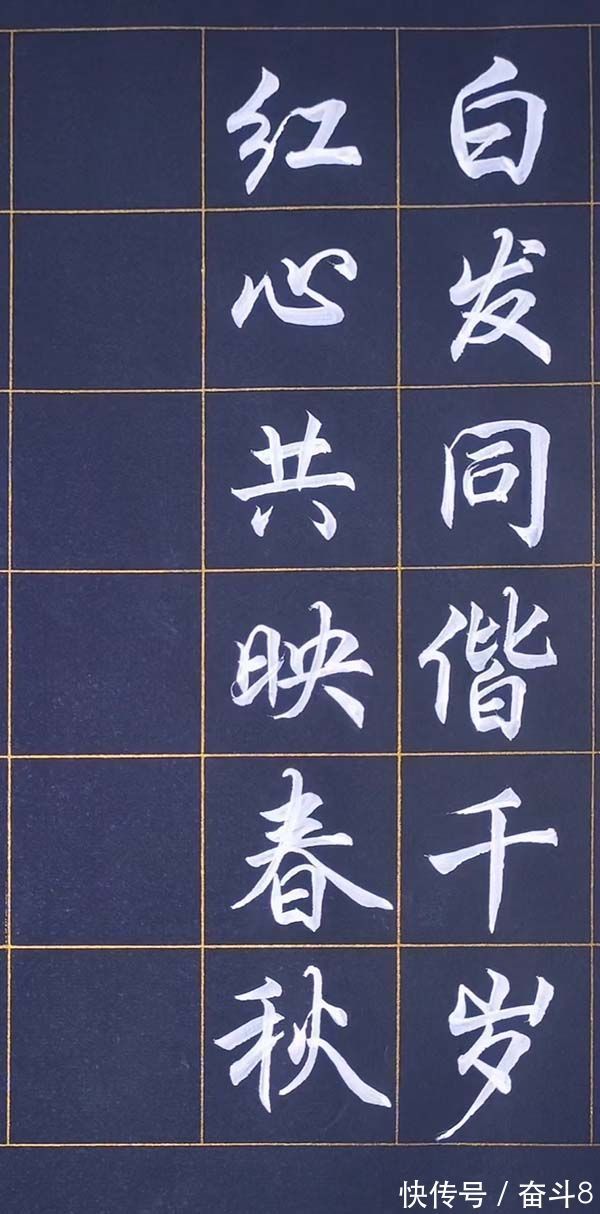 白发同偕千岁
红心共映春秋
快传号 / 奋斗8